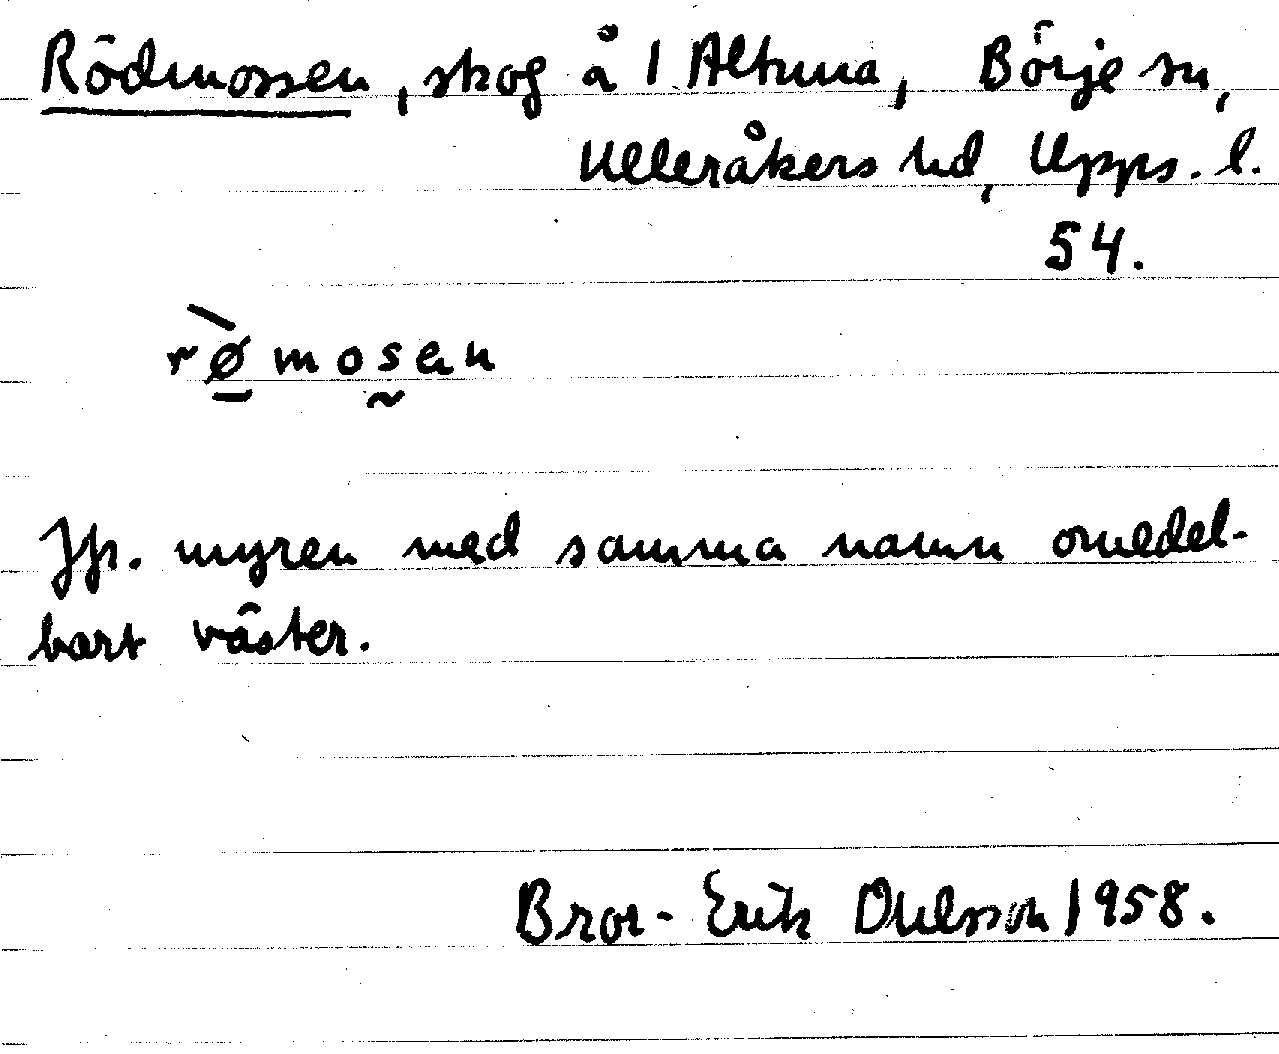 Rödmossen, skog å 1 Altuna, Börje sn,
Ulleråkers hd, Upps. l.
54.
rø̀mosen
Jfr. myren med samma namn omedel-
bart väster.
Bror-Erik Ohlsson 1958.